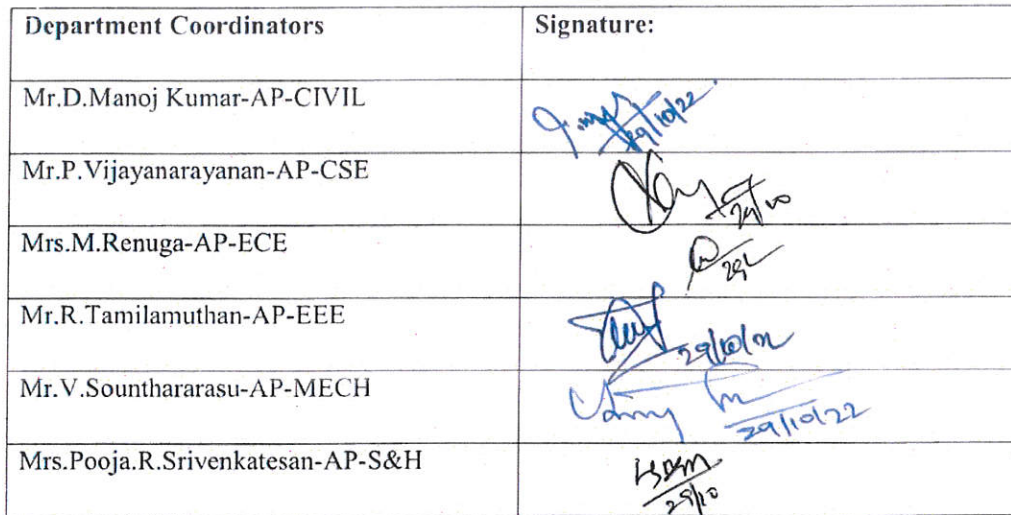 Department Coordinators Signature:
Mr.D.Manoj Kumar-AP-CIVIL 29/10/22
Mr.P.Vijayanarayanan-AP-CSE 29/10
Mrs.M.Renuga-AP-ECE
Mr.R.Tamilamuthan-AP-EEE 29/10/22
Mr.V.Sounthararasu-AP-MECH 29/10/22
Mrs.Pooja.R.Srivenkatesan-AP-S&H 29/10